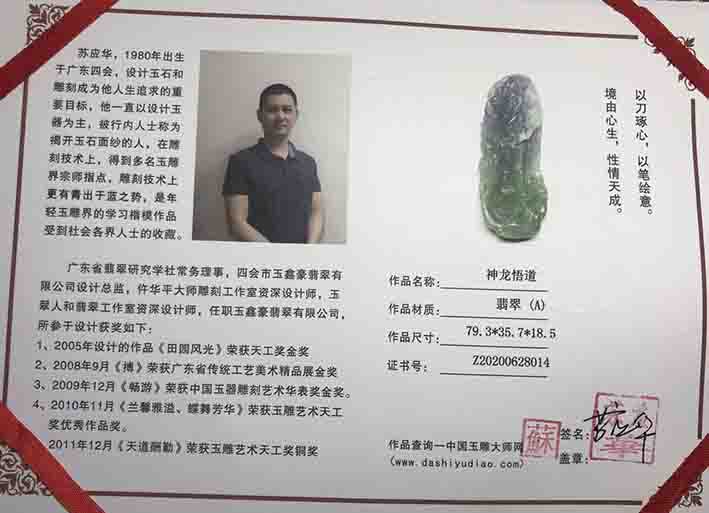 苏应华，1980年出生
于广东四会，设计玉石和
雕刻成为他人生追求的重
要目标，他一直以设计玉
器为主，被行内人士称为
揭开玉石面纱的人，在雕
刻技术上，得到多名玉雕
界宗师指点，雕刻技术上
更有青出于蓝之势，是年
轻玉雕界的学习楷模作品
受到社会各界人士的收藏。
广东省翡翠研究学社常务理事，四会市玉鑫豪翡翠有
限公司设计总监，仵华平大师雕刻工作室资深设计师，玉
翠人和翡翠工作室资深设计师，任职玉鑫豪翡翠有限公司，
所参于设计获奖如下：
1、2005年设计的作品《田园风光》荣获天工奖金奖
2、2008年9月《搏》荣获广东省传统工艺美术精品展金奖
3、2009年12月《畅游》荣获中国玉器雕刻艺术华表奖金奖。
4、2010年11月《兰馨雅溢、蝶舞芳华》荣获玉雕艺术天工
奖优秀作品奖。
2011年12月《天道酬勤》荣获玉雕艺术天工奖铜奖
以刀琢心，以笔绘意。
境由心生，性情天成。
作品名称：神龙悟道
作品材质：翡翠（A）
作品尺寸：79.3*35.7*18.5
证书号：Z20200628014
作品查询—中国玉雕大师网
(www.dashiyudiao.com)
蘇
签名：苏应华
盖章：
華